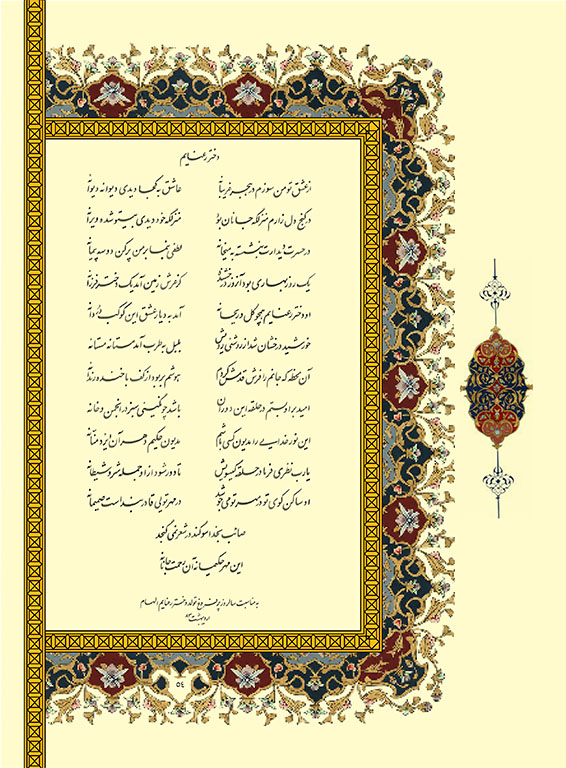 دختر رعنایم
از عشق تو من سوزم در هجر غریبانه عاشق به کجا دیدی دیوانه دیوانه
در کنج دل زارم منزلگه جانان بود منزلگه خود دیدی بیتو شده ویرانه
در حسرت دیدارت بنشسته به میخانه لطفی بنما بر من پر کن دو سه پیمانه
یک روز بهاری بود آنروز درخشنده کز عرش زمین آمد یک دختر فرزانه
او دختر رعنایم همچو گل و ریحانه آمد به دیار عشق این کوکب دردانه
خورشید درخشان شد از روشنی رویش بلبل به طرب آمد مستانه مستانه
آن لحظه که جانم را فرش قدمش کردم هوشم بربود از کف با خنده رندانه
امید برا و بستم در حلقه این دوران باشد چو نگینی سبز در انجمن و خانه
این نور خدایی را مدیون کسی باشم مدیون حکیم و مهر آن ایزد منانه
یارب نظری فرما در حلقه گیسویش تا دور شود از او حمله شر و شیطانه
او ساکن کوی تو در مهر تو می‌جوشد در مهر تویی قادر بنداست صمیمانه
صائب بخدا سوگند در شعر نمی گنجد
این مهر حکیمانه آن رحمت جانانه
به مناسبت سالروز پرفروغ تولد دختر رعنایم الهام
اردیبهشت ۸۳
٥٤